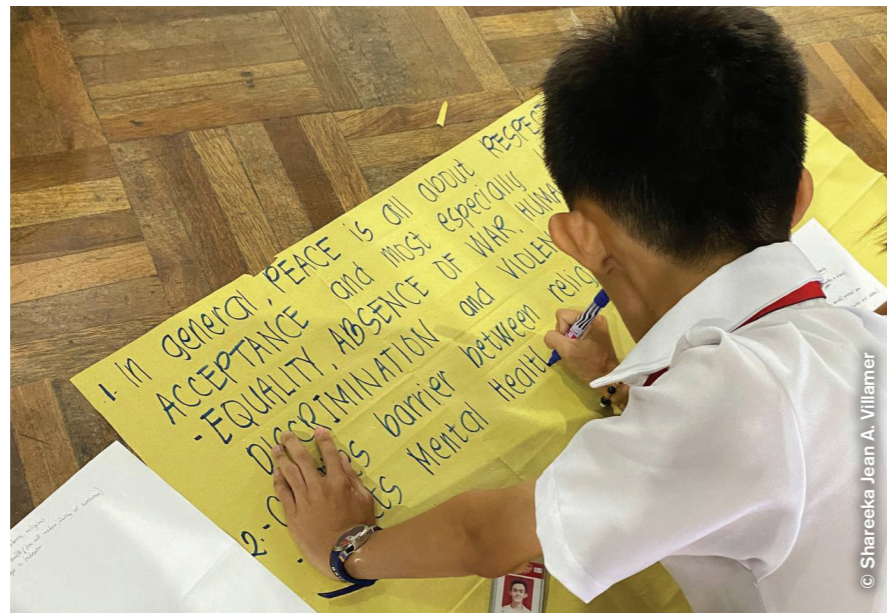 1. In general, PEACE is all about RESPECT
ACCEPTANCE and most especially
- EQUALITY, ABSENCE OF WAR, HUMA
DISCRIMINATION and VIOLEN
2.- barrier between relig
Mental Healt
© Shareeka Jean A. Villamer